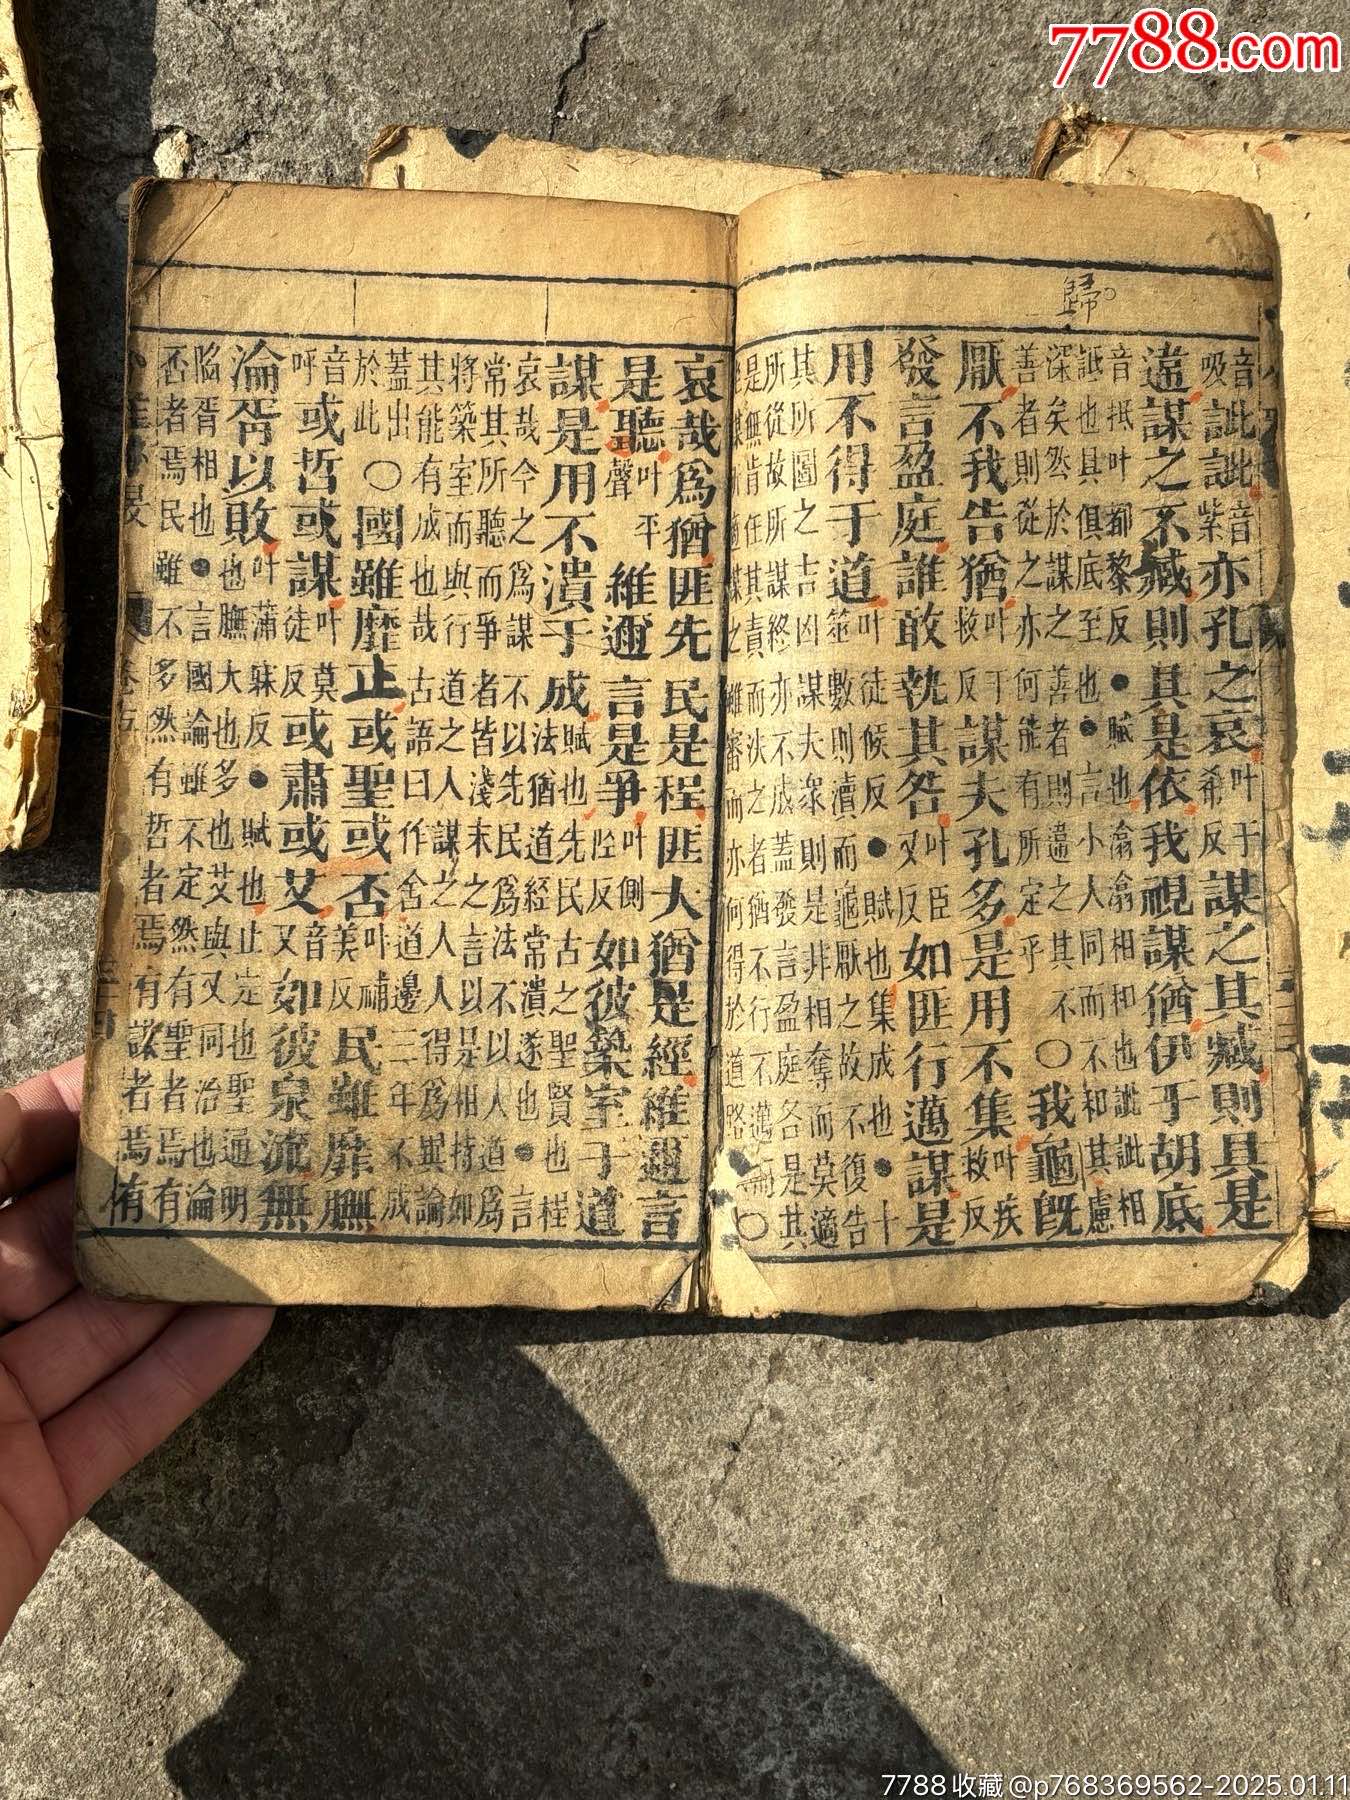 7788.com
歸
音吸訿訿音紫亦孔之哀叶于希反謀之其臧則具是
違謀之不臧則具是依我視謀猶伊于胡底
音抵叶都黎反●賦也潝潝相和也訿訿相
詆也具俱底至也●言小人同而不和其慮
深矣然於謀之善者則違之其不
善者則從之亦何能有所定乎○我龜旣
厭不我告猶叶于救反謀夫孔多是用不集叶疾救反
發言盈庭誰敢執其咎叶臣又反如匪行邁謀是
用不得于道叶徒候反●賦也集成也●十
筮數則瀆而龜厭之故不復告
其所圖之吉凶謀夫衆則是非相奪而莫適
所從故所謀終亦不成蓋發言盈庭各是其
是無肯任其責而決之者猶不行不邁而
坐謀所適謀之雖審而亦何得於道路○
哀哉爲猶匪先民是程匪大猶是經維邇言
是聽叶平聲維邇言是爭叶側陘反如彼築室于道
謀是用不潰于成賦也先民古之聖賢也程
法猶道經常潰遂也●言
哀哉今之爲謀不以先民爲法不以人道爲
常其所聽而爭者皆淺末之言以是相持如
將築室而與行道之人謀之人人得爲異論
其能有成也哉古語曰作舍道邊三年不成
蓋出於此○國雖靡止或聖或否叶補美反民雖靡膴
音呼或哲或謀叶莫徒反或肅或艾音乂如彼泉流無
淪胥以敗叶蒲寐反●賦也止定也聖通明
也膴大也多也艾與乂同治也淪
陷胥相也●言國論雖不定然有聖者焉有
否者焉民雖不多然有哲者焉有謀者焉有
卷五
三十四
7788收藏@p768369562-2025.01.11